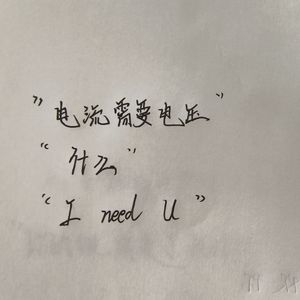 "电流需要电压"
"什么"
"I need U"